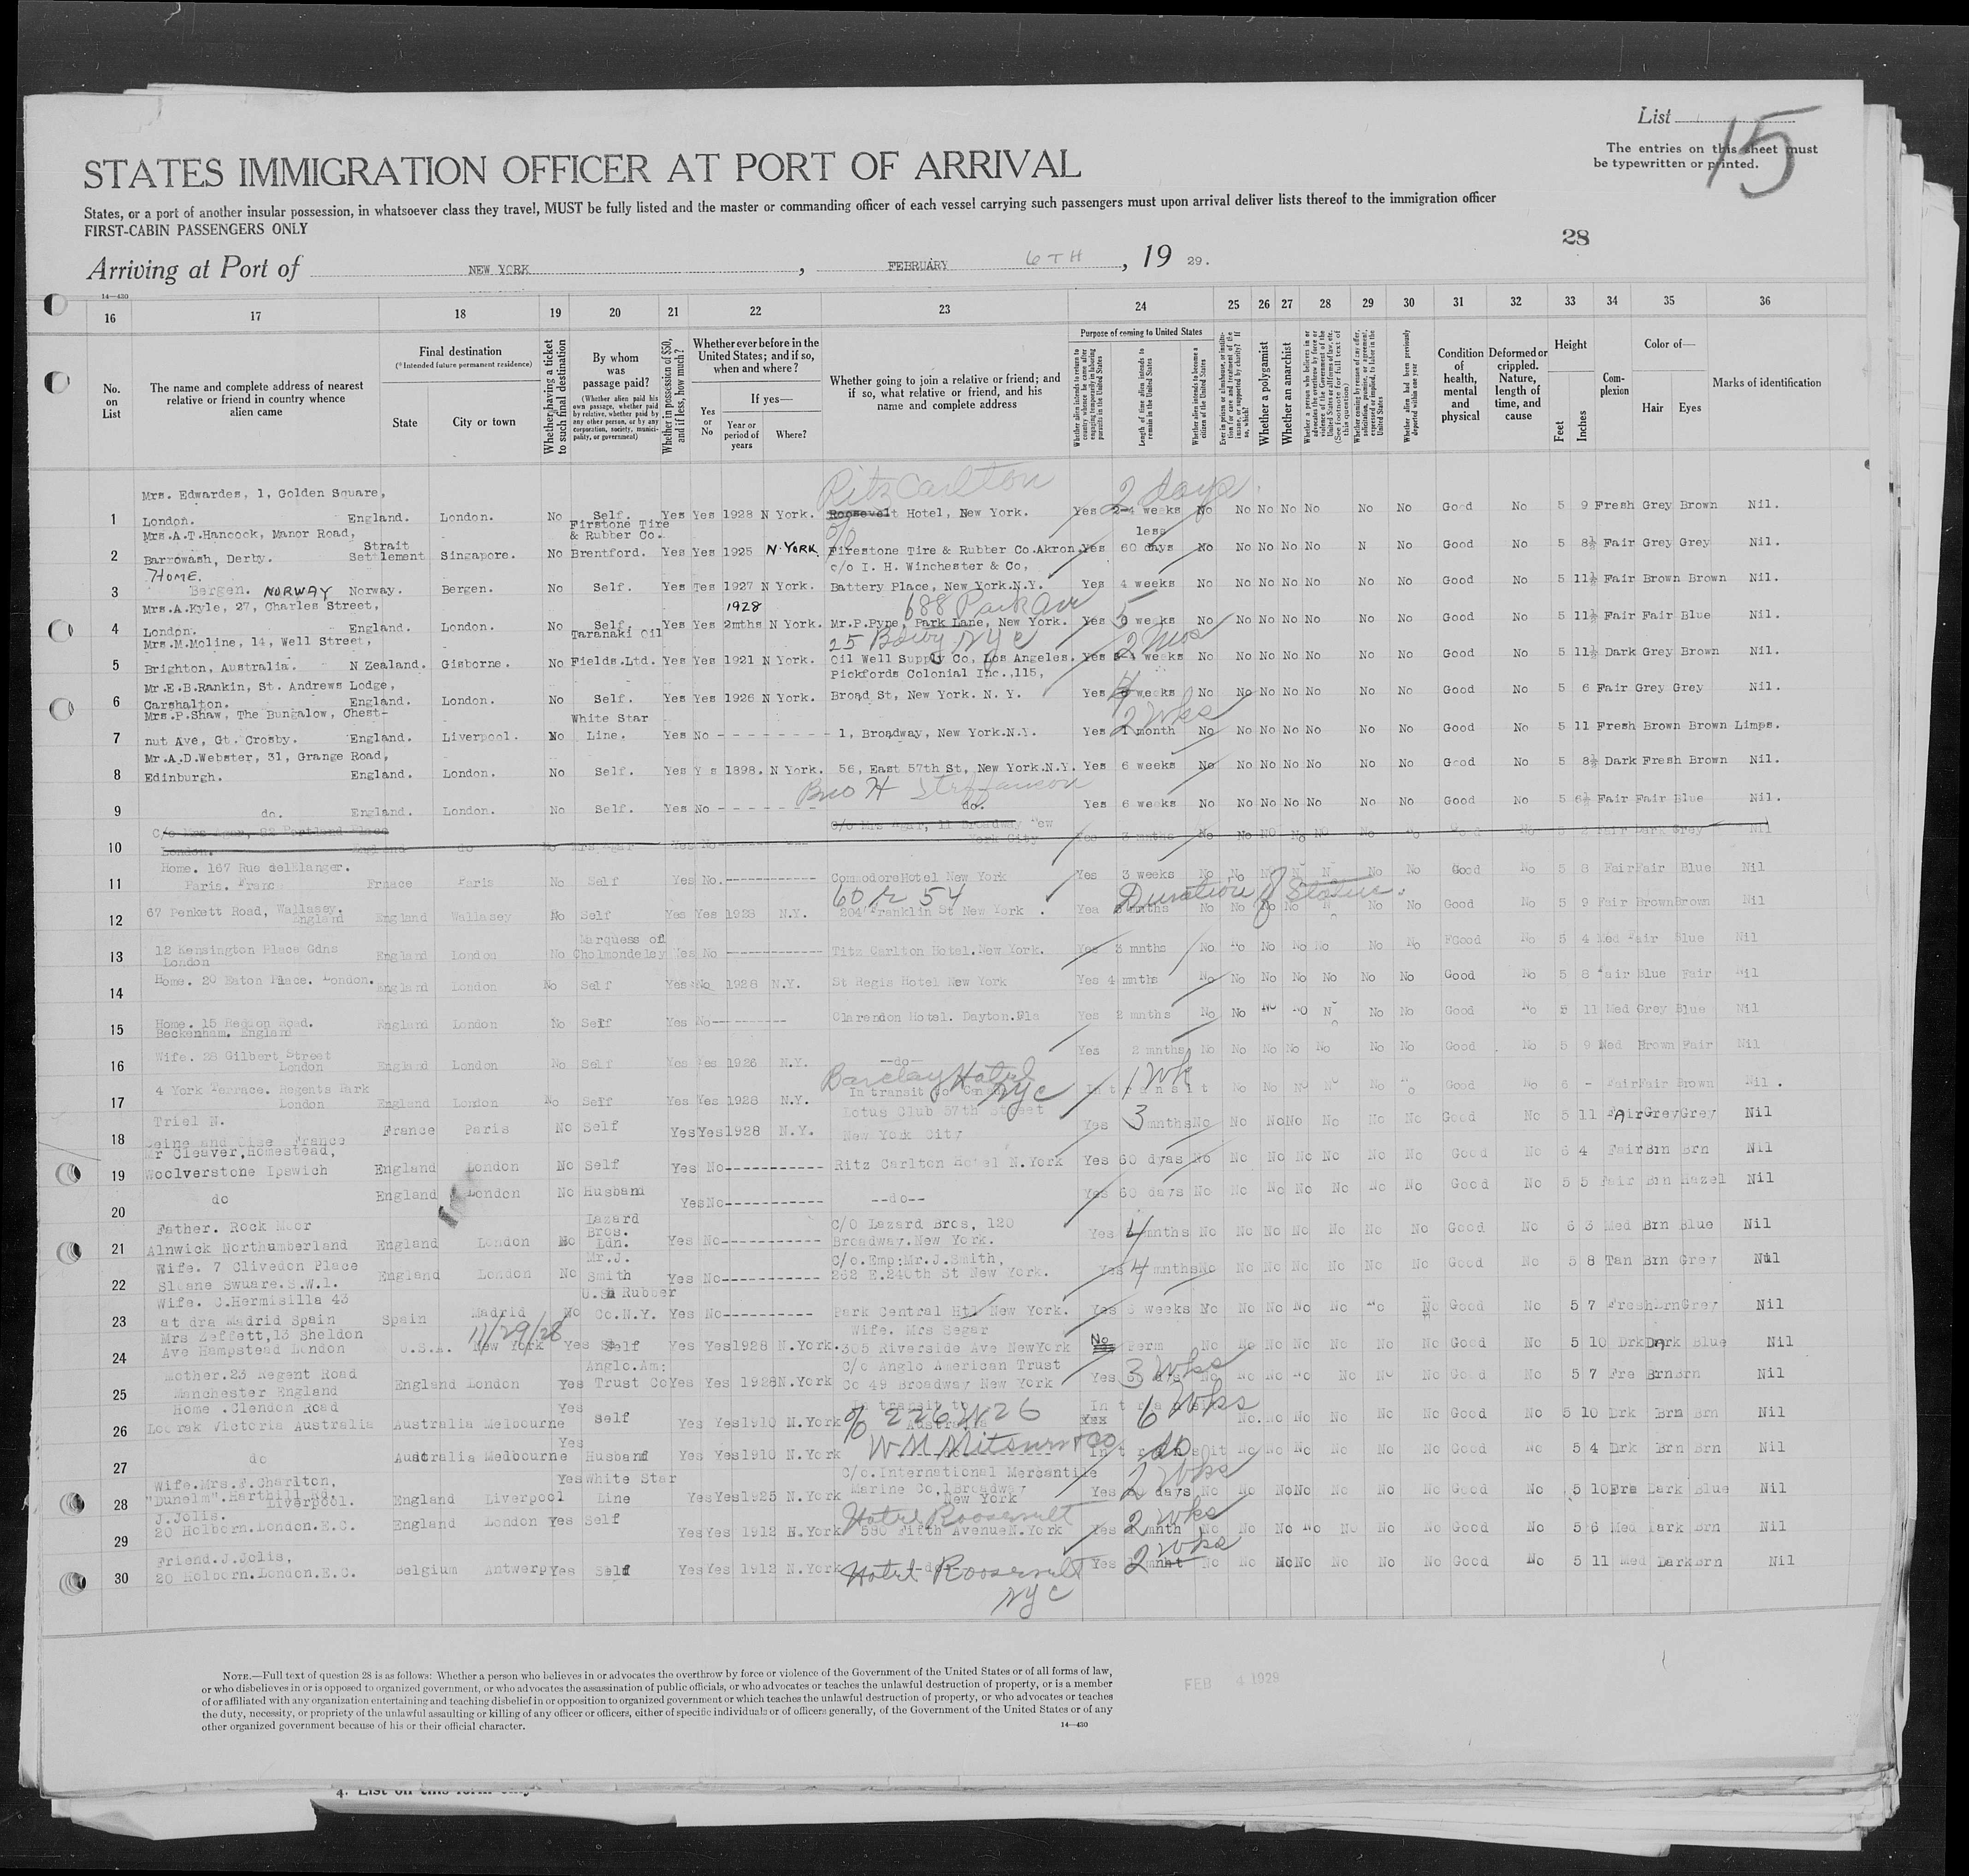 List
15
The entries on this sheet must
be typewritten or printed.
STATES IMMIGRATION OFFICER AT PORT OF ARRIVAL
States, or a port of another insular possession, in whatsoever class they travel, MUST be fully listed and the master or commanding officer of each vessel carrying such passengers must upon arrival deliver lists thereof to the immigration officer
FIRST-CABIN PASSENGERS ONLY
28
Arriving at Port of NEW YORK, FEBRUARY 6TH, 19 29.
14—430
16 17 18 19 20 21 22 23 24 25 26 27 28 29 30 31 32 33 34 35 36
No. on List
The name and complete address of nearest relative or friend in country whence alien came
Final destination
(*Intended future permanent residence)
State
City or town
Whether having a ticket to such final destination
By whom was passage paid?
(Whether alien paid his own passage, whether paid by relative, whether paid by any other person, or by any corporation, society, municipality, or government)
Whether in possession of $50, and if less, how much?
Whether ever before in the United States; and if so, when and where?
Yes or No
If yes—
Year or period of years
Where?
Whether going to join a relative or friend; and if so, what relative or friend, and his name and complete address
Purpose of coming to United States
Length of time alien intends to remain in the United States
Whether alien intends to become a citizen of the United States
Whether a polygamist
Whether an anarchist
Condition of health, mental and physical
Deformed or crippled. Nature, length of time, and cause
Height
Feet
Inches
Complexion
Color of—
Hair Eyes
Marks of identification
Mrs. Edwardes, 1, Golden Square, Ritz Carlton 2 days
1 London. England. London. No Self. Yes Yes 1928 N York. Roosevelt Hotel, New York. Yes 2-4 weeks No No No No No No No Good No 5 9 Fresh Grey Brown Nil.
Mrs.A.T.Hancock, Manor Road, Strait Firstone Tire & Rubber Co. c/o less
2 Barrowash, Derby. Settlement Singapore. No Brentford. Yes Yes 1925 N.YORK. Firestone Tire & Rubber Co.Akron. Yes 60 days No No No No No N No Good No 5 8½ Fair Grey Grey Nil.
HOME. c/o I. H. Winchester & Co,
3 Bergen. NORWAY Norway. Bergen. No Self. Yes Yes 1927 N York. Battery Place, New York.N.Y. Yes 4 weeks No No No No No No No Good No 5 11½ Fair Brown Brown Nil.
Mrs.A.Kyle, 27, Charles Street, 1928 688 Park Ave 5
4 London. England. London. No Self. Yes Yes 2mths N York. Mr.P.Pyne, Park Lane, New York. Yes weeks No No No No No No No Good No 5 11½ Fair Fair Blue Nil.
Mrs.M.Moline, 14, Well Street, Taranaki Oil 25 Bdwy NYC 2 Mos
5 Brighton, Australia. N Zealand. Gisborne. No Fields.Ltd. Yes Yes 1921 N York. Oil Well Supply Co, Los Angeles. Yes weeks No No No No No No No Good No 5 11½ Dark Grey Brown Nil.
Mr.E.B.Rankin, St. Andrews Lodge, Pickfords Colonial Inc.,115,
6 Carshalton. England. London. No Self. Yes Yes 1926 N York. Broad St, New York. N. Y. Yes 4 weeks No No No No No No No Good No 5 6 Fair Grey Grey Nil.
Mrs.P.Shaw, The Bungalow, Chest- White Star 2 Wks
7 nut Ave, Gt. Crosby. England. Liverpool. No Line. Yes No 1, Broadway, New York.N.Y. Yes 1 month No No No No No No No Good No 5 11 Fresh Brown Brown Limps.
Mr.A.D.Webster, 31, Grange Road,
8 Edinburgh. England. London. No Self. Yes Y s 1898. N York. 56, East 57th St, New York.N.Y. Yes 6 weeks No No No No No No No Good No 5 8½ Dark Fresh Brown Nil.
Bro H Steffanson
9 do. England. London. No Self. Yes No do. Yes 6 weeks No No No No No No No Good No 5 6½ Fair Fair Blue Nil.
10 London. England do No Yes No York City Yes 3 mnths No No No No No No No Good No 5 2 Fair Dark Grey Nil
Home. 167 Rue delElanger.
11 Paris. France France Paris No Self Yes No. CommodoreHotel New York Yes 3 weeks No No No N N No No Good No 5 8 Fair Fair Blue Nil
67 Penkett Road, Wallasey. 60 W 54 Duration of Status.
12 England England Wallasey No Self Yes Yes 1928 N.Y. 204 Franklin St New York. Yes mnths No No No No N No No Good No 5 9 Fair Brown Brown Nil
12 Kensington Place Gdns Marquess of
13 London England London No Cholmondeley Yes No Titz Carlton Hotel.New York. Yes 3 mnths No No No No No No No FGood No 5 4 Med Fair Blue Nil
14 Home. 20 Eaton Place. London. England London No Self Yes No 1928 N.Y. St Regis Hotel New York Yes 4 mnths No No No No No No No Good No 5 8 Fair Blue Fair Nil
15 Home. 15 Road. Beckenham. England England London No Self Yes No Clarendon Hotel. Dayton.Fla Yes 2 mnths No No No No N No No Good No 5 11 Med Grey Blue Nil
16 Wife. 28 Gilbert Street London England London No Self Yes Yes 1926 N.Y. --do-- Yes 2 mnths No No No No No No No Good No 5 9 Med Brown Fair Nil
4 York Terrace. Regents Park Barclay Hotel NYC 1 Wk
17 London England London No Self Yes Yes 1928 N.Y. In transit to In transit No No No No No Good No 6 - Fair Fair Brown Nil.
Triel N. Lotus Club 57th Street
18 Seine and Oise France France Paris No Self Yes Yes 1928 N.Y. New York City Yes 3 mnths No No No No No No No Good No 5 11 FAir Grey Grey Nil
Mr Cleaver,Homestead,
19 Woolverstone Ipswich England London No Self Yes No Ritz Carlton Hotel N.York Yes 60 dyas No No No No No No No Good No 6 4 Fair Brn Brn Nil
20 do England London No Husband Yes No --do-- Yes 60 days No No No No No No No Good No 5 5 Fair Brn Hazel Nil
Father. Rock Moor Lazard Bros. C/O Lazard Bros, 120
21 Alnwick Northumberland England London No Ldn. Yes No Broadway.New York. Yes 4 mnths No No No No No No No Good No 6 3 Med Brn Blue Nil
Wife. 7 Clivedon Place Mr.J. C/o.Emp:Mr.J.Smith,
22 Sloane Swuare.S.W.1. England London No Smith Yes No 262 E.240th St New York. Yes 4 mnths No No No No No No No Good No 5 8 Tan Brn Grey Nil
Wife. C.Hermisilla 43 U.S. Rubber
23 at dra Madrid Spain Spain Madrid No Co.N.Y. Yes No Park Central Htl New York. Yes weeks No No No No No No No Good No 5 7 Fresh Brn Grey Nil
Mrs Zeffett,13 Sheldon 11/29/28 Wife. Mrs Segar
24 Ave Hampstead London U.S.A. New York Yes Self Yes Yes 1928 N.York. 305 Riverside Ave NewYork No Perm No No No No No No No Good No 5 10 Drk DArk Blue Nil
Mother.23 Regent Road Anglo.Am: C/o Anglo American Trust 3 Wks
25 Manchester England England London Yes Trust Co Yes Yes 1928 N.York Co 49 Broadway New York Yes No No No No No No No Good No 5 7 Fre Brn Brn Nil
Home .Clendon Road Yes c/o 226 W 26 6 Wks
26 Victoria Australia Australia Melbourne Self Yes Yes 1910 N.York No No No No No No Good No 5 10 Drk Brn Brn Nil
Yes do
27 do Australia Melbourne Husband Yes Yes 1910 N.York No No No No No No Good No 5 4 Drk Brn Brn Nil
Wife.Mrs.F.Charlton, Yes White Star C/o.International Mercantile 2 Wks
28 "Dunelm".Harthill Rd. Liverpool. England Liverpool Line Yes Yes 1925 N.York Marine Co,1Broadway New York Yes days No No No No No No No Good No 5 10 Fre Dark Blue Nil
J.Jolis. Hotel Roosevelt 2 wks
29 20 Holborn.London.E.C. England London Yes Self Yes Yes 1912 N.York 580 Fifth Avenue N.York Yes mnth No No No No No No No Good No 5 6 Med Dark Brn Nil
Friend.J.Jolis, 2 wks
30 20 Holborn.London.E.C. Belgium Antwerp Yes Self Yes Yes 1912 N.York Hotel Roosevelt NYC Yes No No No No No No No Good No 5 11 Med Dark Brn Nil
NOTE.—Full text of question 28 is as follows: Whether a person who believes in or advocates the overthrow by force or violence of the Government of the United States or of all forms of law,
or who disbelieves in or is opposed to organized government, or who advocates the assassination of public officials, or who advocates or teaches the unlawful destruction of property, or is a member
of or affiliated with any organization entertaining and teaching disbelief in or opposition to organized government or which teaches the unlawful destruction of property, or who advocates or teaches
the duty, necessity, or propriety of the unlawful assaulting or killing of any officer or officers, either of specific individuals or of officers generally, of the Government of the United States or of any
other organized government because of his or their official character.
14—430
FEB 4 1929